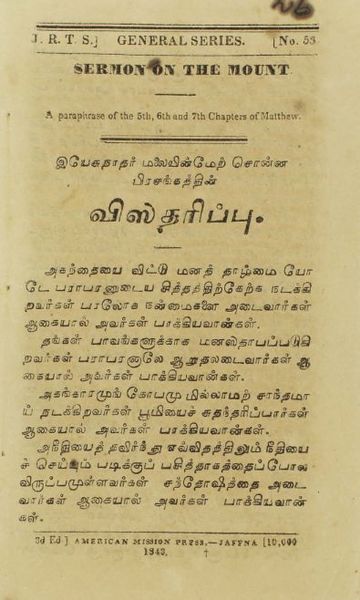 26
J. R. T. S.] GENERAL SERIES. [No. 53
SERMON ON THE MOUNT
A paraphrase of the 5th, 6th and 7th Chapters of Matthew.
இயேசுநாதர் மலையின்மேற் சொன்ன
பிரசங்கத்தின்
விஸ்தரிப்பு.
அகந்தையை விட்டு மனத் தாழ்மை யோ
டே பராபரனுடைய சித்தத்திற்கேற்க நடக்கி
றவர்கள் பரலோக நன்மைகளை அடைவார்கள்
ஆகையால் அவர்கள் பாக்கியவான்கள்.
தங்கள் பாவங்களுக்காக மனஸ்தாபப்படுகி
றவர்கள் பராபரனாலே ஆறுதலடைவார்கள் ஆ
கையால் அவர்கள் பாக்கியவான்கள்.
அகங்காரமுங் கோபமு மில்லாமற் சாந்தமா
ய் நடக்கிறவர்கள் பூமியைச் சுதந்தரிப்பார்கள்
ஆகையால் அவர்கள் பாக்கியவான்கள்.
அநீதியைத் தவிர்ந்து எவ்விதத்திலும் நீதியை
ச் செய்யும் படிக்குப் பசித்தாகத்தைப்போல
விருப்பமுள்ளவர்கள் சந்தோஷித்தை அடை
வார்கள் ஆகையால் அவர்கள் பாக்கியவான்
கள்.
3d Ed ] AMERICAN MISSION PRESS,—JAFFNA [10,000
1843. †